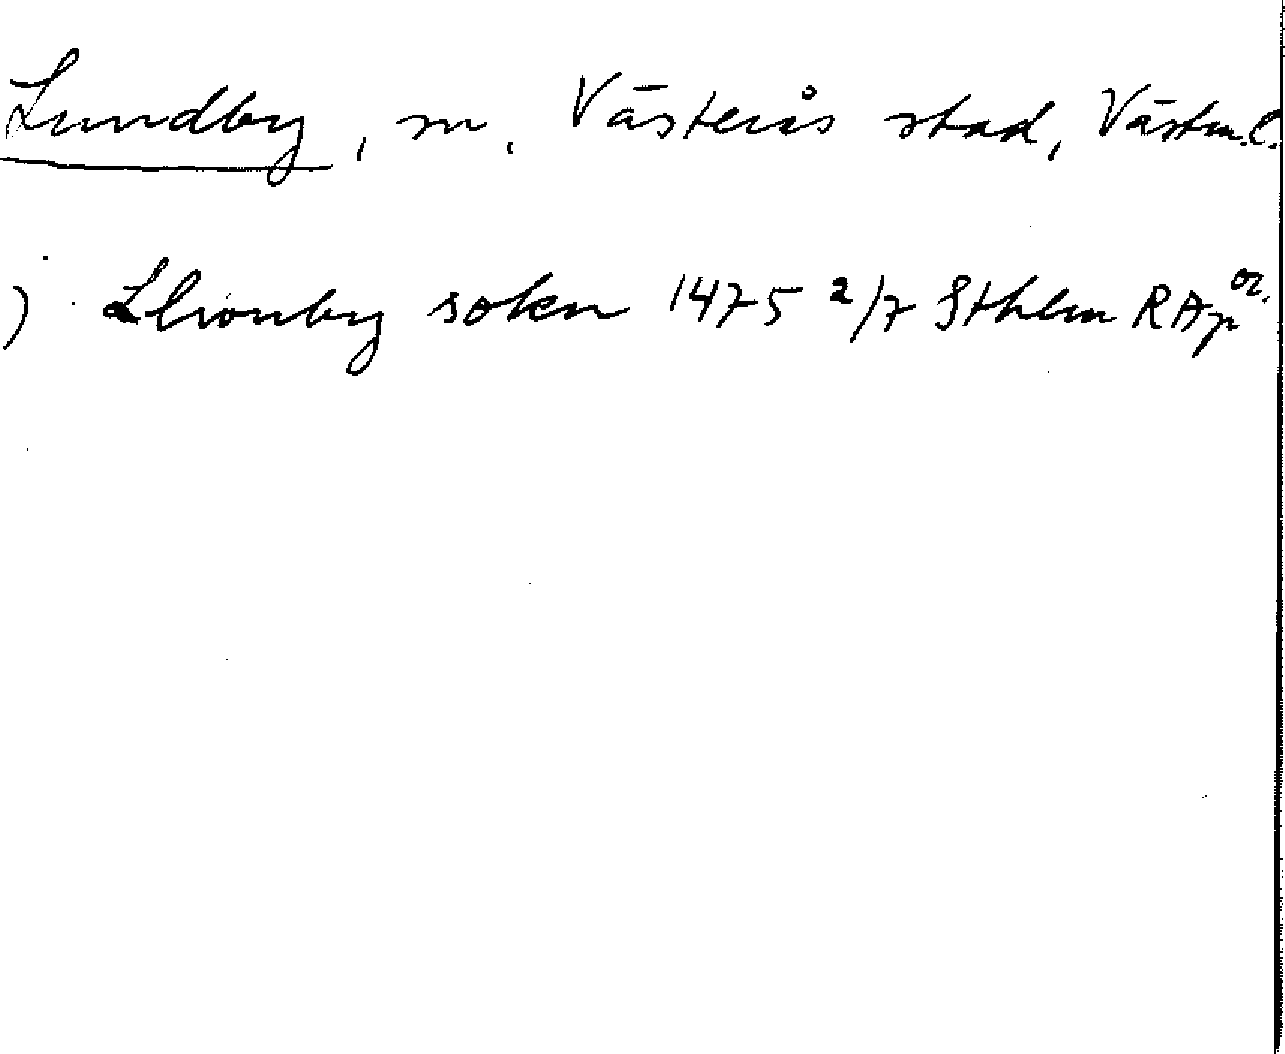 Lundby, sn. Västerås stad, Västm.l.
) Lhwnby sokn 1475 2/7 Sthlm RAp or.